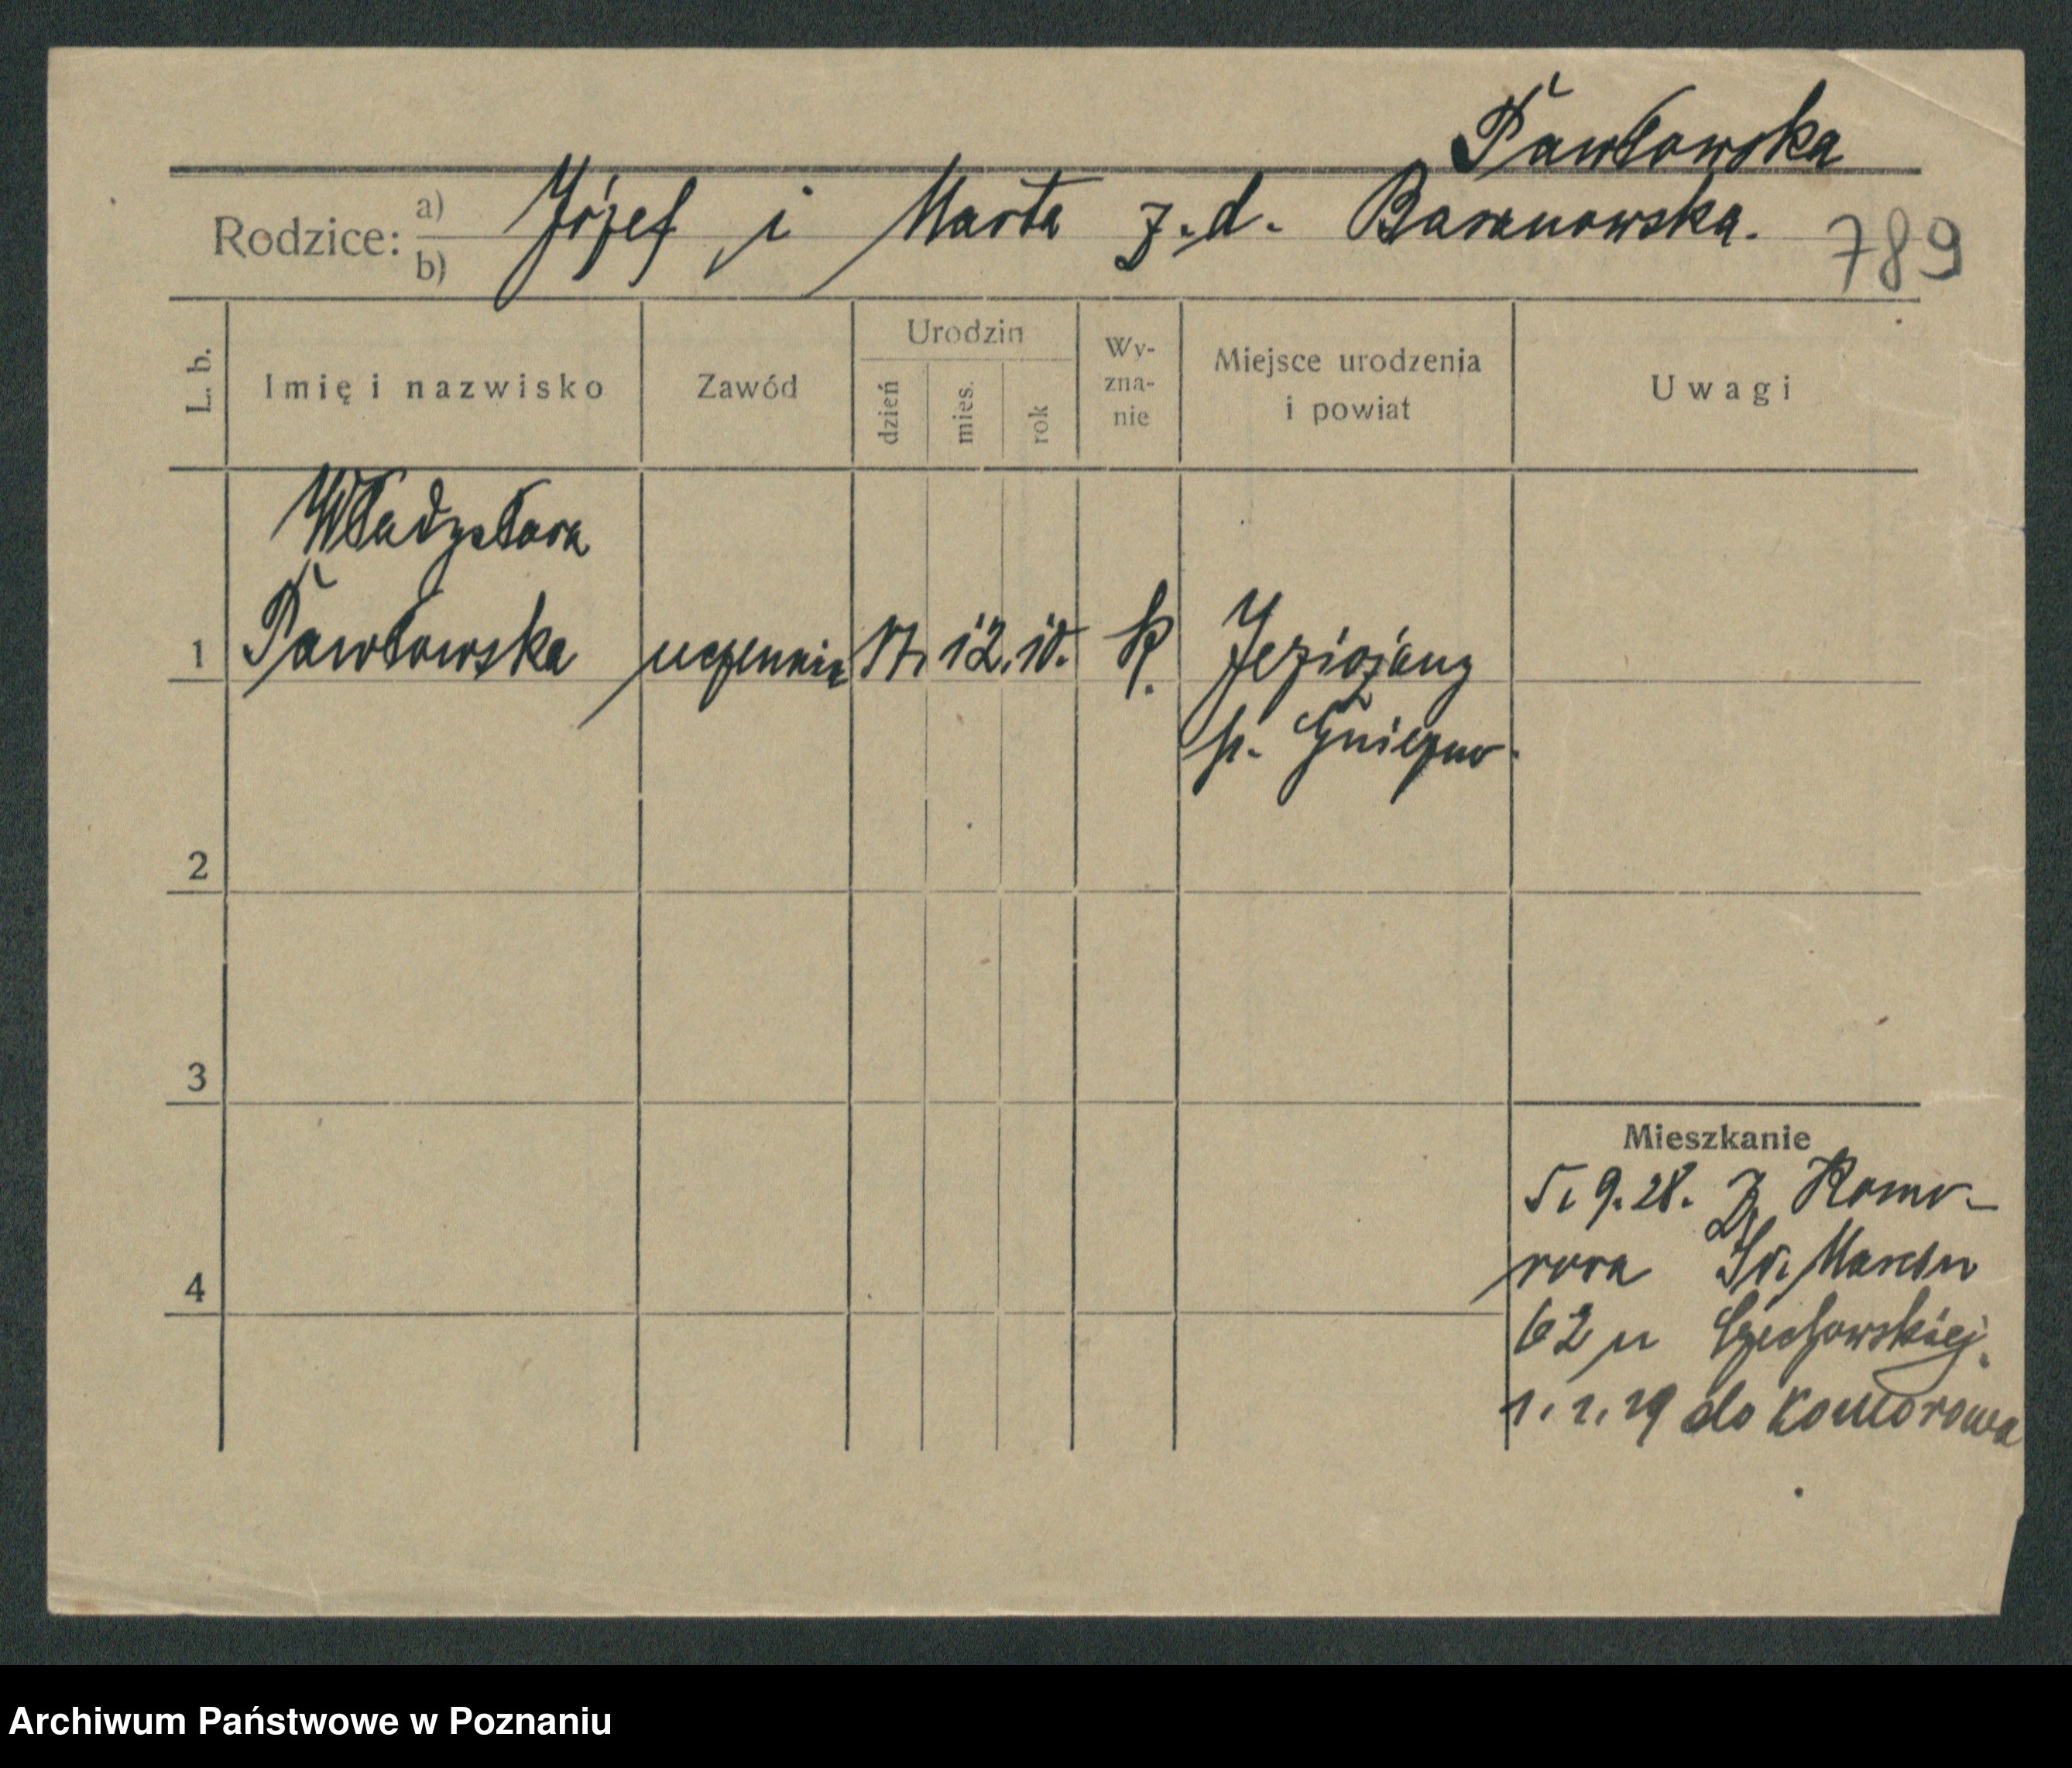 Pawłowska
Rodzice: a) b) Józef i Marta z.d. Baranowska.
789
L. b.
Imię i nazwisko
Zawód
Urodzin
dzień
mies.
rok
Wy-
zna-
nie
Miejsce urodzenia
i powiat
Uwagi
Władysława
1 Pawłowska uczennica 12. K.
p. Gniezno.
2
3
4
Mieszkanie
5. 9. 28. Z Komo-
rowa Św. Marcin
62 u Czechowskiej.
1. 1. 29 do Komorowa
Archiwum Państwowe w Poznaniu